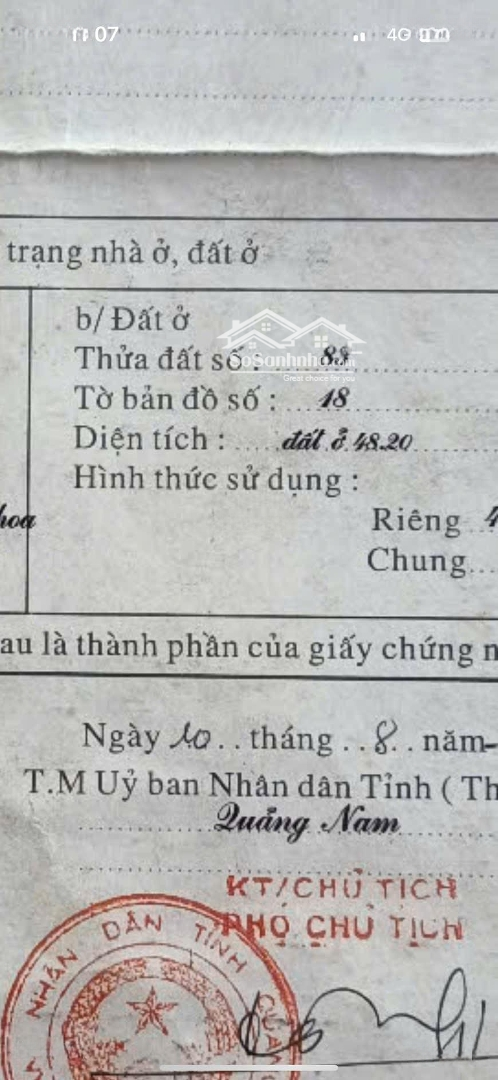 07 4G
trạng nhà ở, đất ở
b/ Đất ở
Thửa đất số : 88
SoSanhnha.com
Great choice for you
Tờ bản đồ số : 18
Diện tích : đất ở 48.20
Hình thức sử dụng :
hoa
Riêng 4
Chung
au là thành phần của giấy chứng n
Ngày 10 tháng 8 năm
T.M Uỷ ban Nhân dân Tỉnh ( Th
Quảng Nam
KT/CHỦ TỊCH
PHÓ CHỦ TỊCH
NHÂN DÂN TỈNH QUẢ